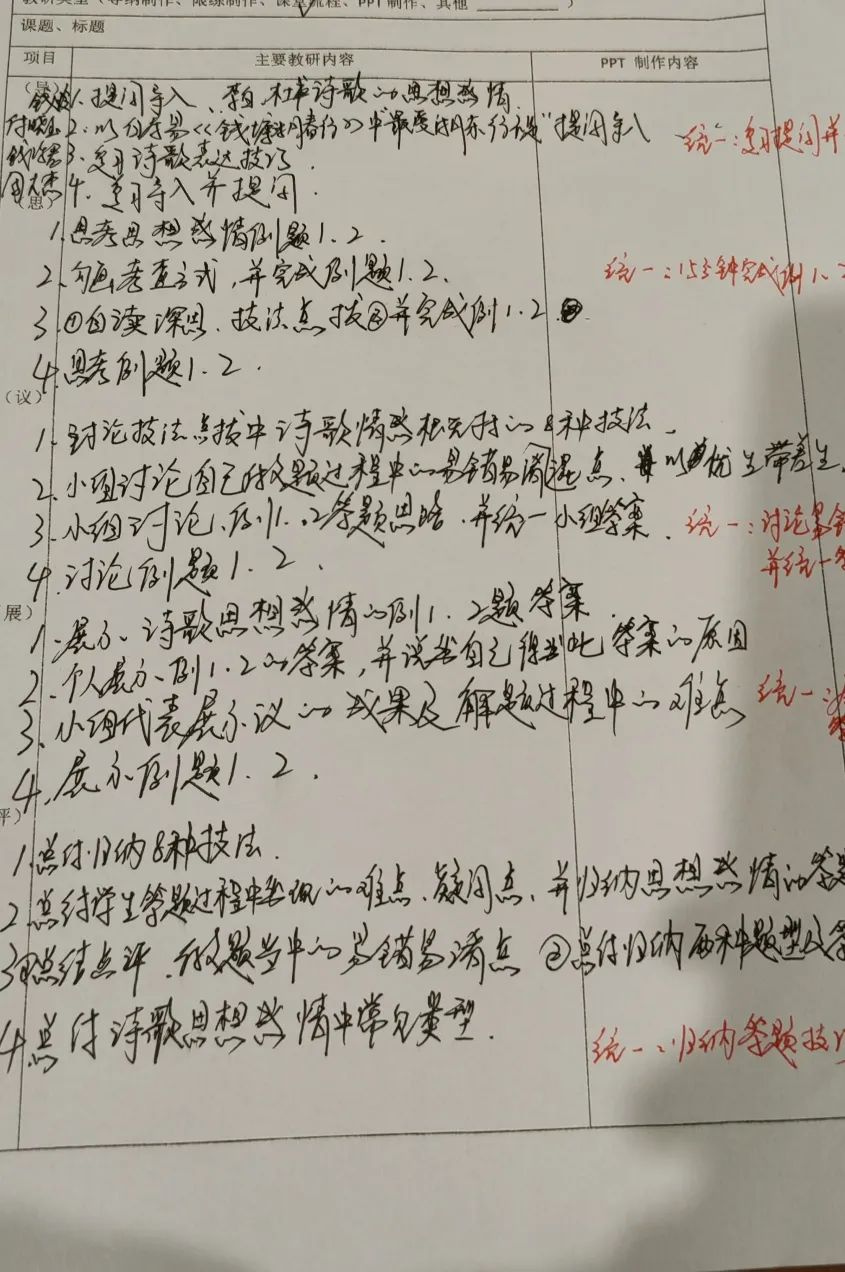 教研类型（导纳制作、限练制作、课堂流程、PPT制作、其他 ）
课题、标题
项目 主要教研内容 PPT 制作内容
1. 提问导入、李白、杜甫诗歌的思想感情
2. 以白居易《钱塘湖春行》中“最爱湖东行不足”提问导入 统一：复习提问并
3. 复习诗歌表达技巧
4. 复习导入并提问.
（思）
1. 思考思想感情例题1.2.
2. 勾画考查方式，并完成例题1.2. 统一：15分钟完成例1.2
3. ①自读深思、技法点拨②并完成例1.2
4. 思考例题1.2.
（议）
1. 讨论技法点拨中诗歌情感的8种技法.
2. 小组讨论自己做题过程中的易错易混点、以优生带差生.
3. 小组讨论、例1.2答题思路.并统一小组答案. 统一：讨论易错
4. 讨论例题1.2. 并统一答
（展）
1. 展示、诗歌思想感情的例1.2题答案.
2. 个人展示、例1.2的答案，并说出自己得出此答案的原因
3. 小组代表展示议的成果及解题过程中的难点 统一：
4. 展示例题1.2.
评）
1. 总结归纳8种技法.
2. 总结学生答题过程中出现的难点、疑问点、并归纳思想感情的答题
3 ①总结点评.做题当中的易错易混点 ②总结归纳两种题型及答
4. 总结诗歌思想感情中常见类型. 统一：归纳答题技巧